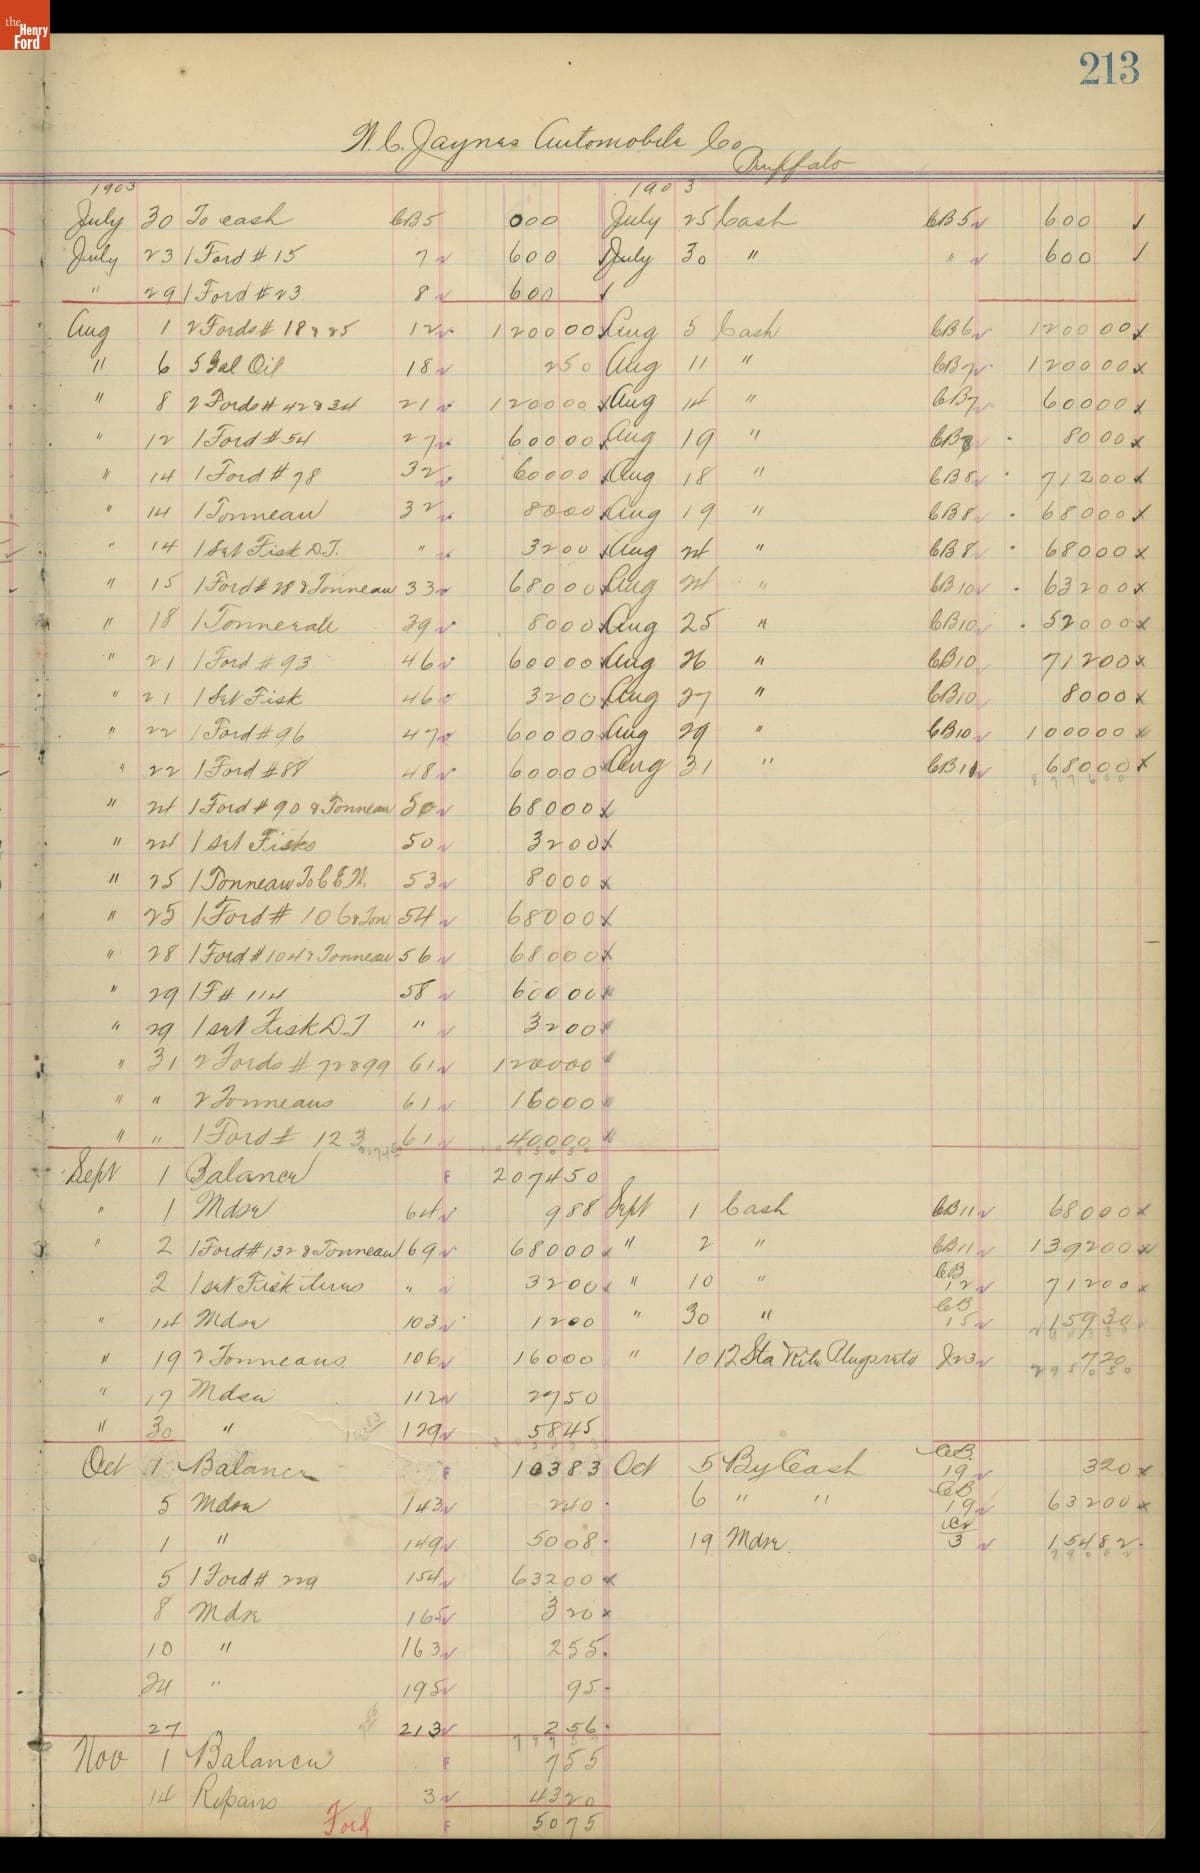 the Henry Ford
213
W. C. Jaynes Automobile Co
Buffalo
1903 1903
July 30 To cash CB5 000 July 25 Cash CB5 600
July 23 1 Ford # 15 7 600 July 30 " " 600
" 29 1 Ford # 23 8 600
Aug 1 2 Fords # 18 & 25 12 120000 Aug 5 Cash CB6 120000
" 6 5 Gal Oil 18 250 Aug 11 " CB7 120000
" 8 2 Fords # 42 & 34 21 120000 Aug 14 " CB7 60000
" 12 1 Ford # 54 27 60000 Aug 19 " CB8 8000
" 14 1 Ford # 78 32 60000 Aug 18 " CB8 71200
" 14 1 Tonneau 32 8000 Aug 19 " CB8 68000
" 14 1 Set Fisk D.T. " 3200 Aug 24 " CB8 68000
" 15 1 Ford # 28 & Tonneau 33 68000 Aug 24 " CB10 63200
" 18 1 Tonneau 39 8000 Aug 25 " CB10 52000
" 21 1 Ford # 93 46 60000 Aug 26 " CB10 71200
" 21 1 Set Fisk 46 3200 Aug 27 " CB10 8000
" 22 1 Ford # 96 47 60000 Aug 29 " CB10 100000
" 22 1 Ford # 88 48 60000 Aug 31 " CB11 68000
" 24 1 Ford # 90 & Tonneau 50 68000
" 24 1 set Fisks 50 3200
" 25 1 Tonneau To C.E.H. 53 8000
" 25 1 Ford # 106 & Ton 54 68000
" 28 1 Ford # 104 & Tonneau 56 68000
" 29 1 F # 114 58 60000
" 29 1 set Fisk D.T " 3200
" 31 2 Fords # 72 & 99 61 120000
" " 2 Tonneaus 61 16000
" " 1 Ford # 123 61 40000
Sept 1 Balance F 207450
" 1 Mdse 64 988 Sept 1 Cash CB11 68000
" 2 1 Ford # 132 & Tonneau 69 68000 " 2 " CB11 139200
2 1 set Fisk tires " 3200 " 10 " CB 12 71200
" 14 Mdse 103 1200 " 30 " CB 15 15930
" 19 2 Tonneaus 106 16000 " 10 12 Sta Rite Plugs reto J23 720
" 17 Mdse 112 2750
" 30 " 129 5845
Oct 1 Balance F 10383 Oct 5 By Cash CB 19 320
5 Mdse 143 240 6 " " CB 19 63200
1 " 149 5008 19 Mdse. Cr 3 15482
5 1 Ford # 229 154 63200
8 Mdse 165 320
10 " 163 255
24 " 195 95
27 213 256
Nov 1 Balance F 755
14 Repairs 3 4320
Ford F 5075